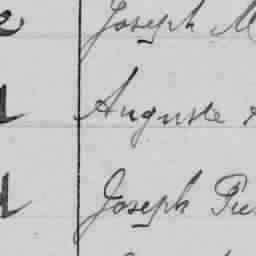 Joseph M
Auguste
Joseph Pie